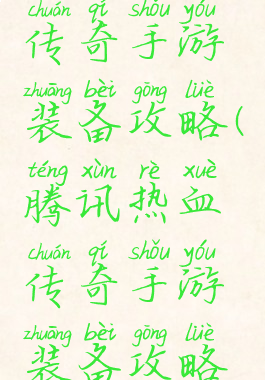 chuán qí shǒu yóu
传奇手游
zhuāng bèi gōng lüè
装备攻略(
téng xùn rè xuè
腾讯热血
chuán qí shǒu yóu
传奇手游
zhuāng bèi gōng lüè
装备攻略